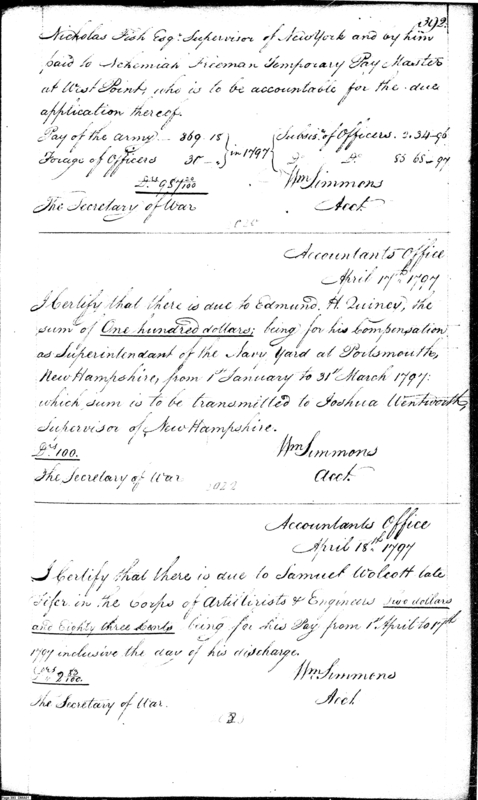 392
Nicholas Fish Esqr. Supervisor of New York and by him
paid to Nehemiah Freeman Temporary Pay Master
at West Point, who is to be accountable for the due
application thereof.
Pay of the army 869 15 } in 1797 { Subsis. of Officers 2.34-96
Forage of Officers 31 - . Do Do 55 65-97
Drs 957 20/100
Wm Simmons
The Secretary of War
Acct.
Accountants Office
April 17th 1797
I Certify that there is due to Edmund. H Quincy, the
sum of One hundred dollars; being for his Compensation
as Superintendant of the Navy Yard at Portsmouth,
New Hampshire, from 1st January to 31st March 1797:
which sum is to be transmitted to Joshua Wentworth,
Supervisor of New Hampshire.
Drs 100.
Wm Simmons
The Secretary of War
Acct.
Accountants Office
April 18th 1797
I Certify that there is due to Samuel Wolcott late
Fifer in the Corps of Artillerists & Engineers two dollars
and Eighty three Cents being for his Pay from 1st April to 17th
1797 inclusive the day of his discharge.
Drs 2 83/100.
Wm Simmons
The Secretary of War.
Acct.